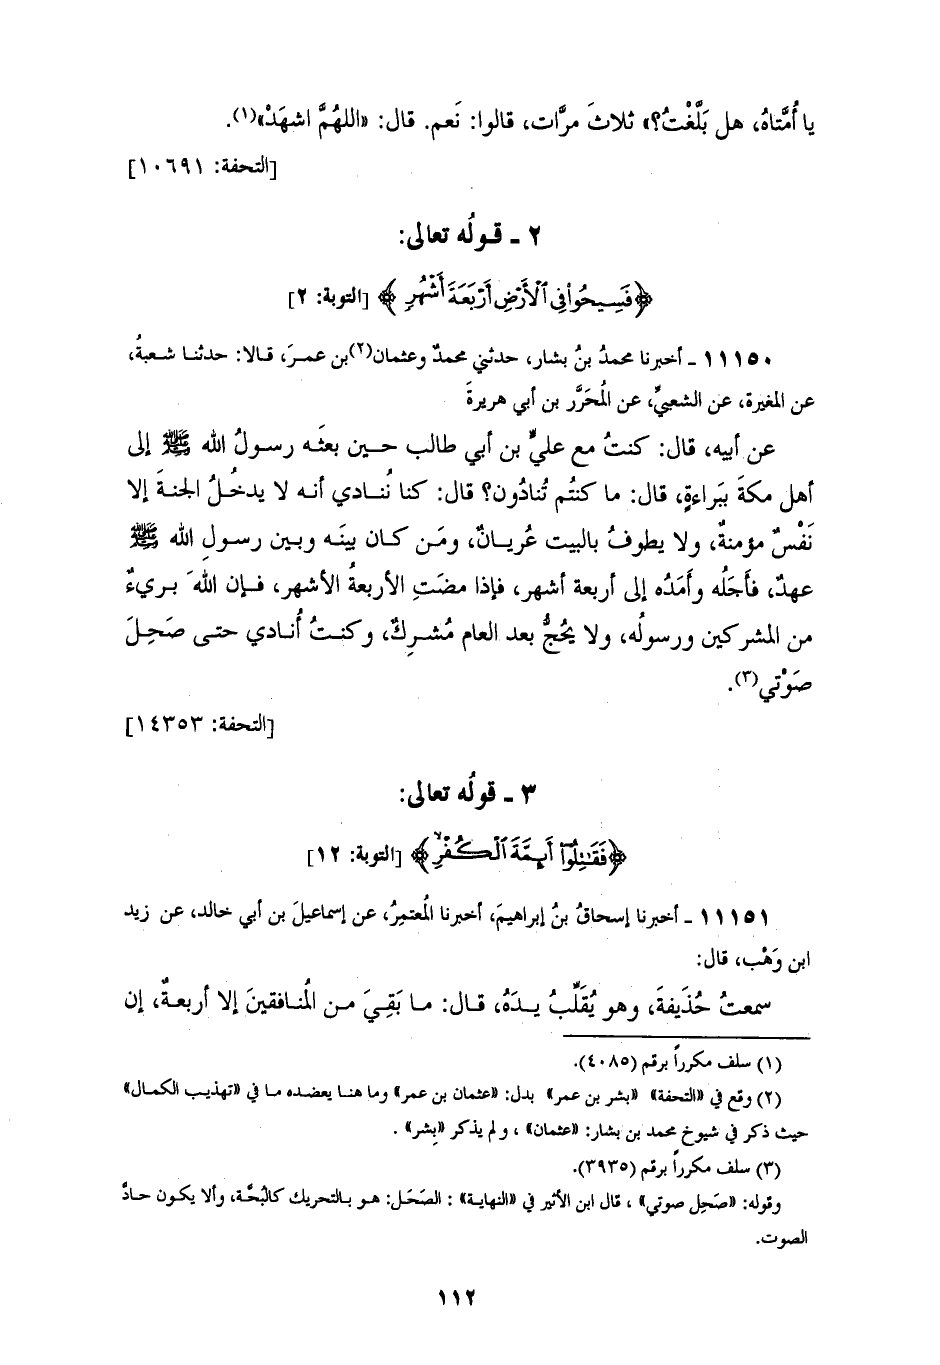 يا أُمَّتاهُ، هل بَلَّغْتُ؟» ثلاثَ مرَّات، قالوا: نَعم. قال: «اللهُمَّ اشهَدْ»(١).
[التحفة: ١٠٦٩١]
٢ ـ قولُه تعالى:
﴿فَسِيحُوا۟ فِى ٱلْأَرْضِ أَرْبَعَةَ أَشْهُرٍ﴾ [التوبة: ٢]
١١١٥٠ ـ أخبرنا محمدُ بنُ بشار، حدثني محمدٌ وعثمان(٢)بن عمرَ، قالا: حدثنا شعبةُ،
عن المغيرة، عن الشعبيِّ، عن المُحَرَّر بن أبي هريرةَ
عن أبيه، قال: كنتُ مع عليِّ بن أبي طالب حين بعثَه رسولُ الله ﷺ إلى
أهل مكةَ ببَراءةٍ، قال: ما كنتُم تُنادُون؟ قال: كنا نُنادي أنه لا يدخُلُ الجنةَ إلا
نَفْسٌ مؤمنةٌ، ولا يطوفُ بالبيت عُريانٌ، ومَن كان بينَه وبين رسولِ الله ﷺ
عهدٌ، فأَجَلُه وأَمَدُه إلى أربعة أشهر، فإذا مضَتِ الأربعةُ الأشهر، فإن اللهَ بريءٌ
من المشركين ورسولُه، ولا يَحُجُّ بعد العام مُشرِكٌ، وكنتُ أُنادي حتى صَحِلَ
صَوْتي(٣).
[التحفة: ١٤٣٥٣]
٣ ـ قولُه تعالى:
﴿فَقَـٰتِلُوٓا۟ أَئِمَّةَ ٱلْكُفْرِ﴾ [التوبة: ١٢]
١١١٥١ ـ أخبرنا إسحاقُ بنُ إبراهيمَ، أخبرنا المُعتمِرُ، عن إسماعيلَ بن أبي خالد، عن زيد
ابن وَهْب، قال:
سمعتُ حُذَيفةَ، وهو يُقَلِّبُ يدَهُ، قال: ما بَقِيَ من المُنافقينَ إلا أربعةٌ، إن
(١) سلف مكرراً برقم (٤٠٨٥).
(٢) وقع في «التحفة» «بشر بن عمر» بدل: «عثمان بن عمر» وما هنا يعضده ما في «تهذيب الكمال»
حيث ذكر في شيوخ محمد بن بشار: «عثمان» ، ولم يذكر «بِشر» .
(٣) سلف مكرراً برقم (٣٩٣٥).
وقوله: «صَحِل صوتي» ، قال ابن الأثير في «النهاية» : الصَحَل: هو بالتحريك كالبُحَّة، وألا يكون حادَّ
الصوت.
١١٢